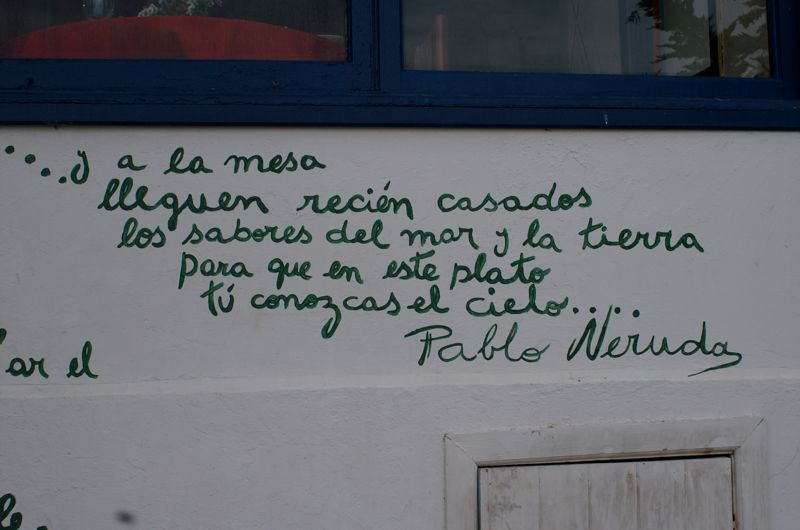 .....y a la mesa
lleguen recién casados
los sabores del mar y la tierra
para que en este plato
tú conozcas el cielo.....
Pablo Neruda
ar el